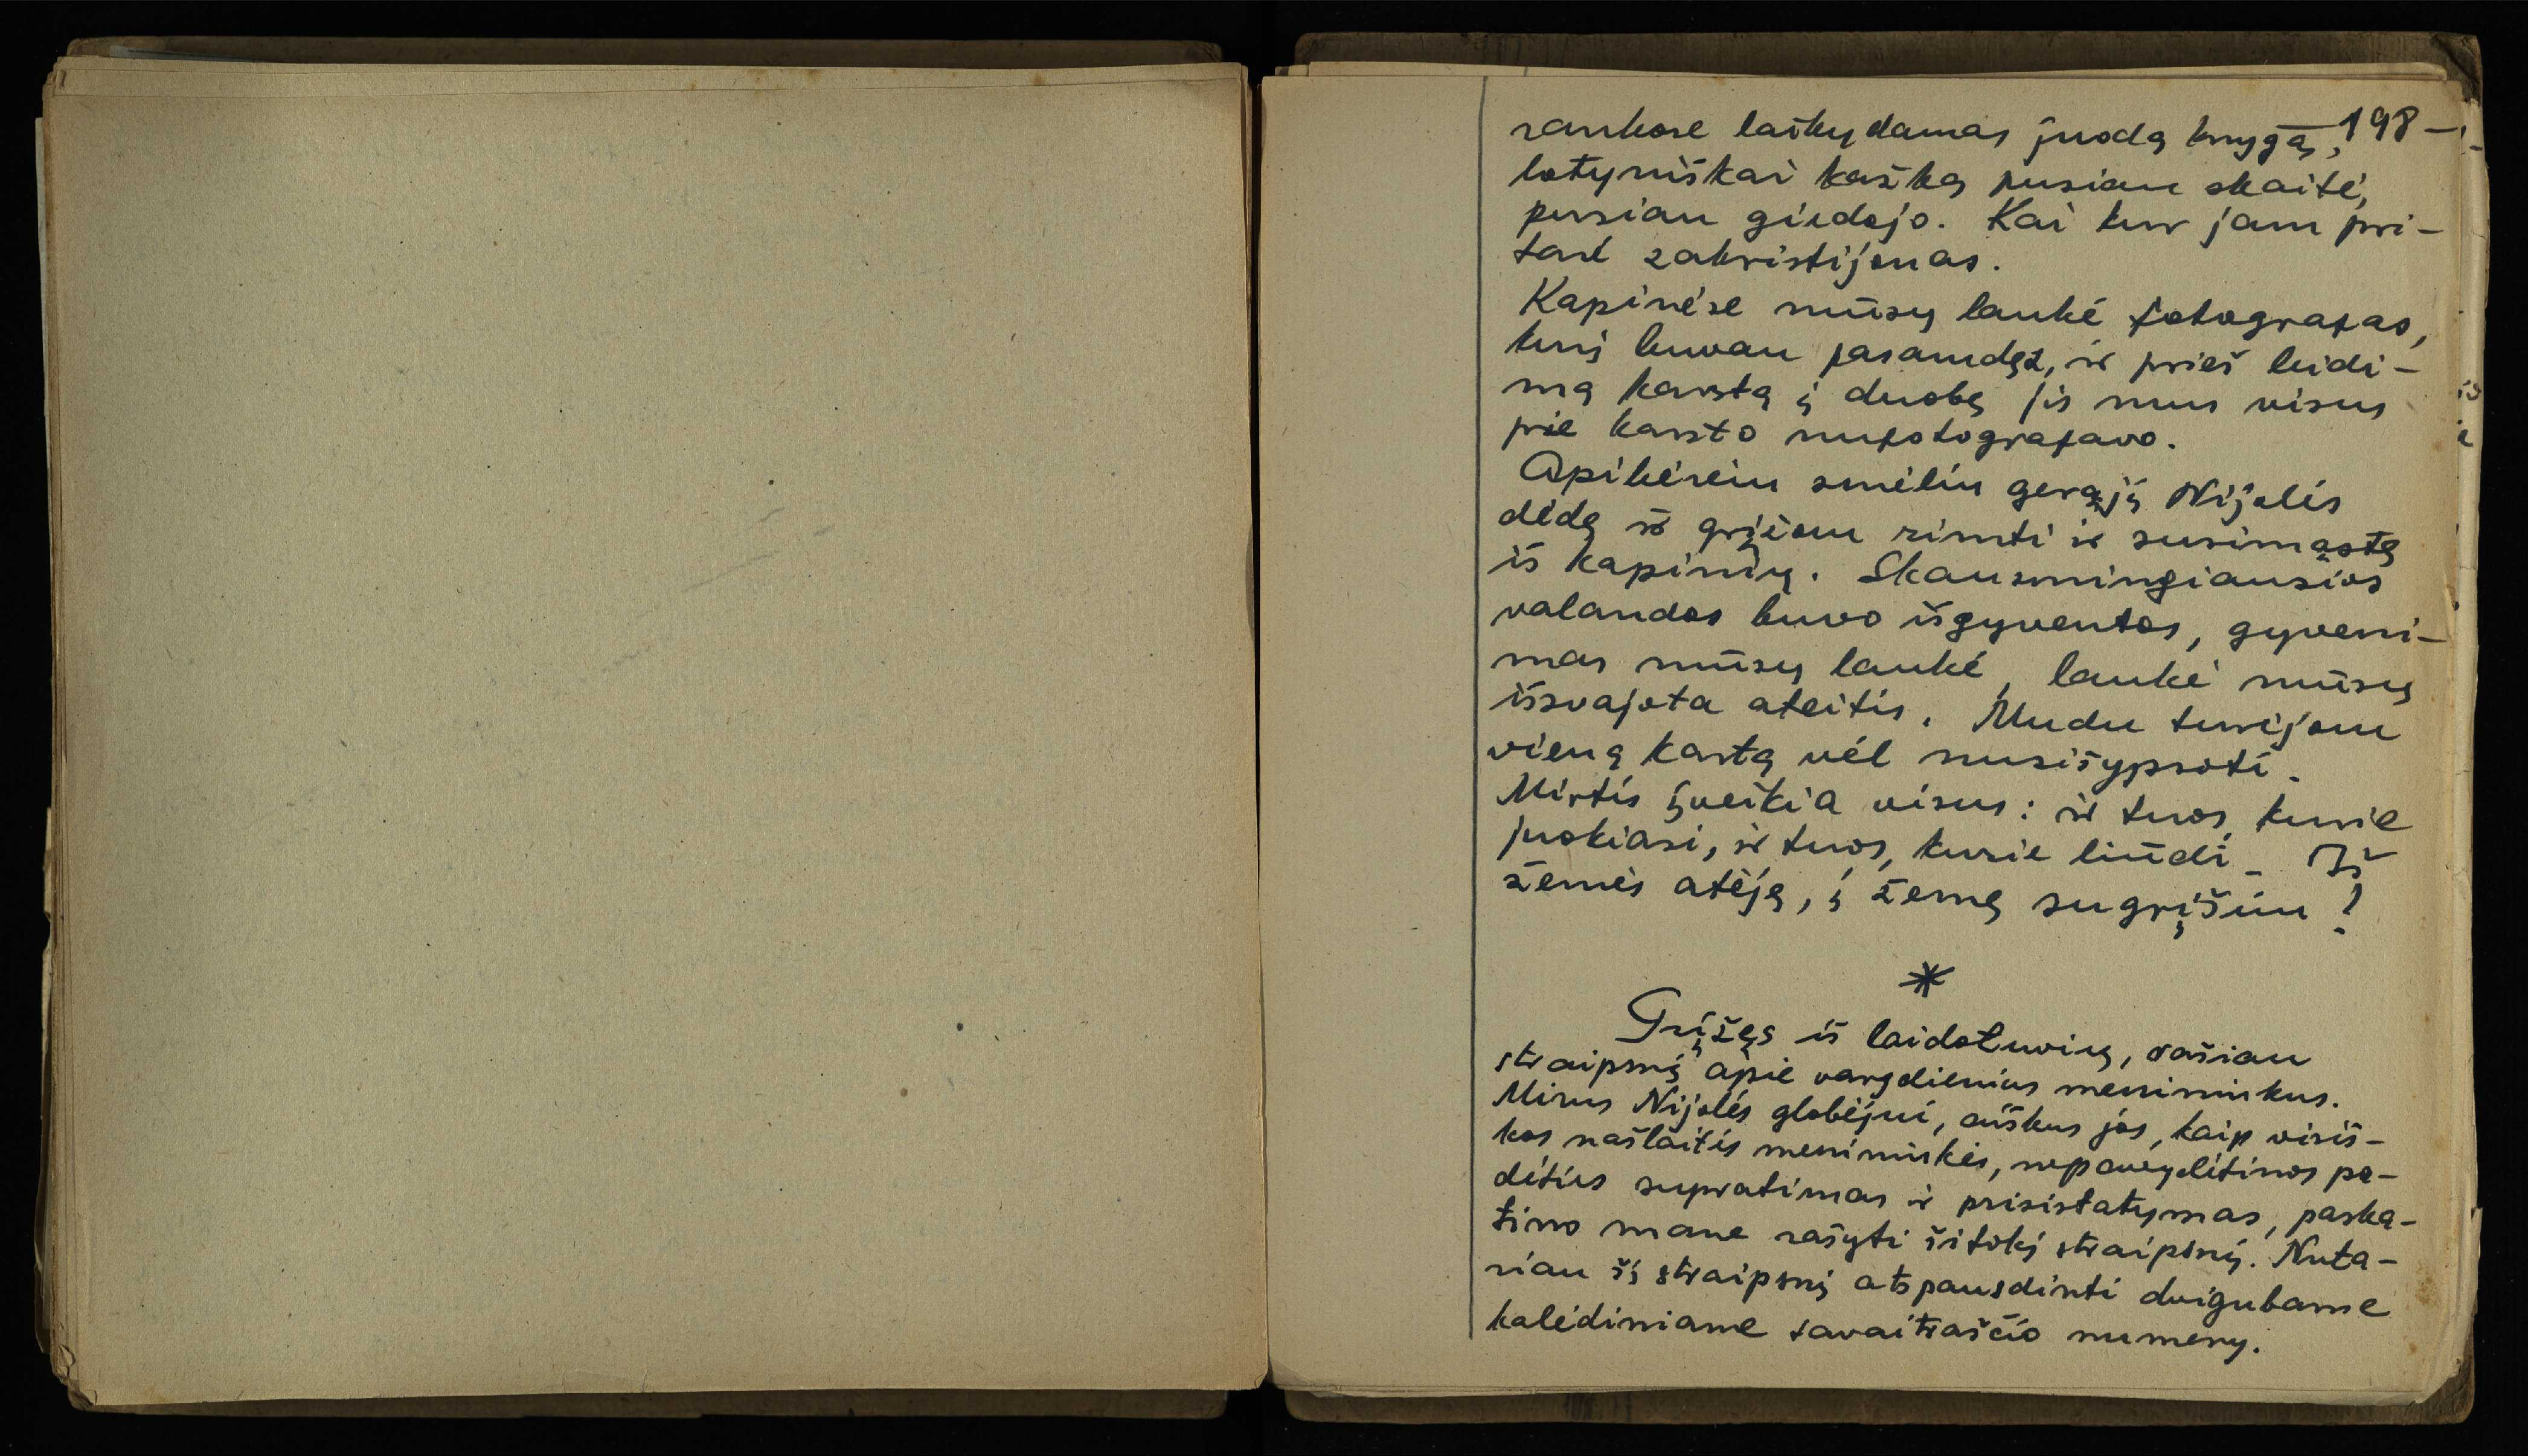 – 198 –
rankose laikydamas juodą knygą,
lotyniškai kažką pusiau skaitė,
pusiau giedojo. Kai kur jam pri-
tarė zakristijonas.
Kapinėse mūsų laukė fotografas,
kurį buvau pasamdęs, ir prieš leidi-
mą karstą į duobę jis mus visus
prie karsto nufotografavo.
Apibėrėm smėliu gerąjį Nijolės
dėdę ir grįžom rimti ir susimąstę
iš kapinių. Skausmingiausios
valandos buvo išgyventos, gyveni-
mas mūsų laukė, laukė mūsų
išsvajota ateitis. Mudu turėjom
vieną kartą vėl nusišypsoti.
Mirtis įveikia visus: ir tuos, kurie
juokiasi, ir tuos, kurie liūdi. Iš
žemės atėję, į žemę sugrįšim!
*
Grįžęs iš laidotuvių, rašiau
straipsnį apie vargdienius menininkus.
Mirus Nijolės globėjui, aiškus jos, kaip visiš-
kos našlaitės menininkės, nepavydėtinos pa-
dėties supratimas ir prisistatymas, paska-
tino mane rašyti šitokį straipsnį. Nuta-
riau šį straipsnį atspausdinti dvigubame
kalėdiniame savaitraščio numery.